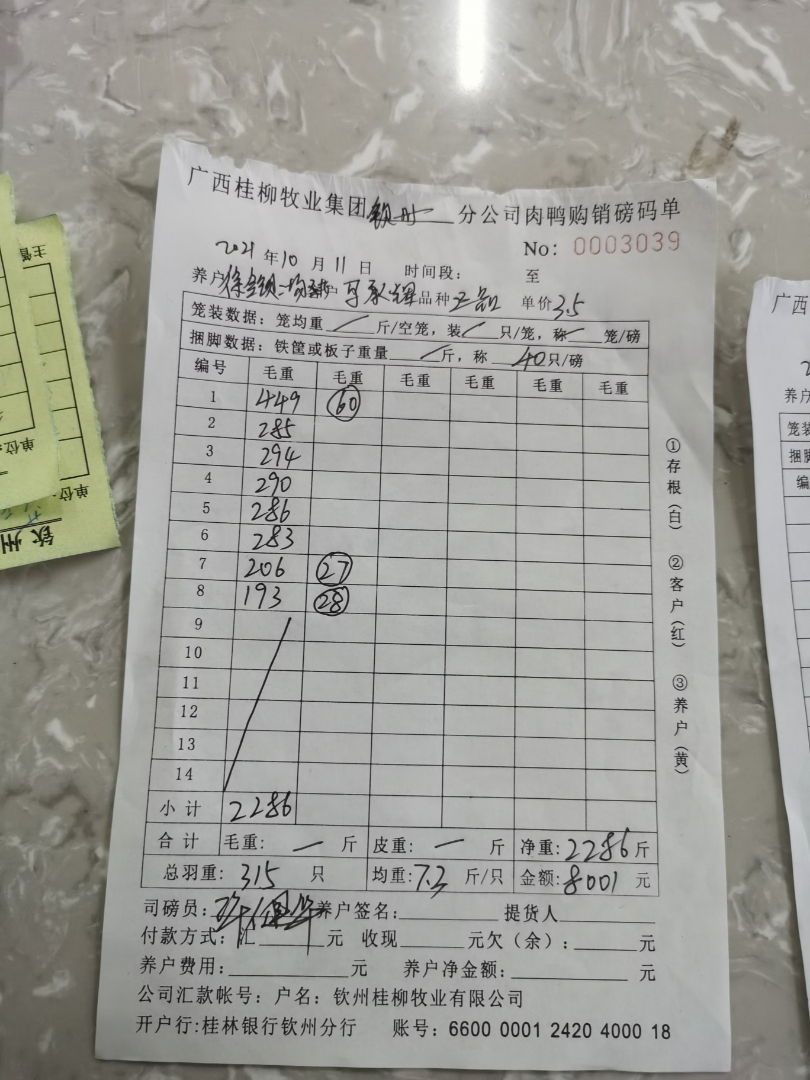 广西桂柳牧业集团钦州分公司肉鸭购销磅码单
No: 0003039
2021年10月11日 时间段: 至
养户 品种正品 单价3.5
笼装数据: 笼均重/斤/空笼, 装/只/笼, 称/笼/磅
捆脚数据: 铁筐或板子重量/斤, 称40只/磅
编号 毛重 毛重 毛重 毛重 毛重 毛重
1 449 60
2 285
3 294
4 290
5 286
6 283
7 206 27
8 193 28
9
10
11
12
13
14
小计 2286
合计 毛重: — 斤 皮重: — 斤 净重: 2286斤
总羽重: 315 只 均重: 7.3 斤/只 金额: 8001 元
司磅员: 养户签名: 提货人
付款方式: 汇 元 收现 元欠(余): 元
养户费用: 元 养户净金额: 元
公司汇款帐号: 户名: 钦州桂柳牧业有限公司
开户行:桂林银行钦州分行 账号: 6600 0001 2420 4000 18
①存根(白) ②客户(红) ③养户(黄)
主管
单位
单位:
钦州
广西
2
养户
笼装
捆脚
编